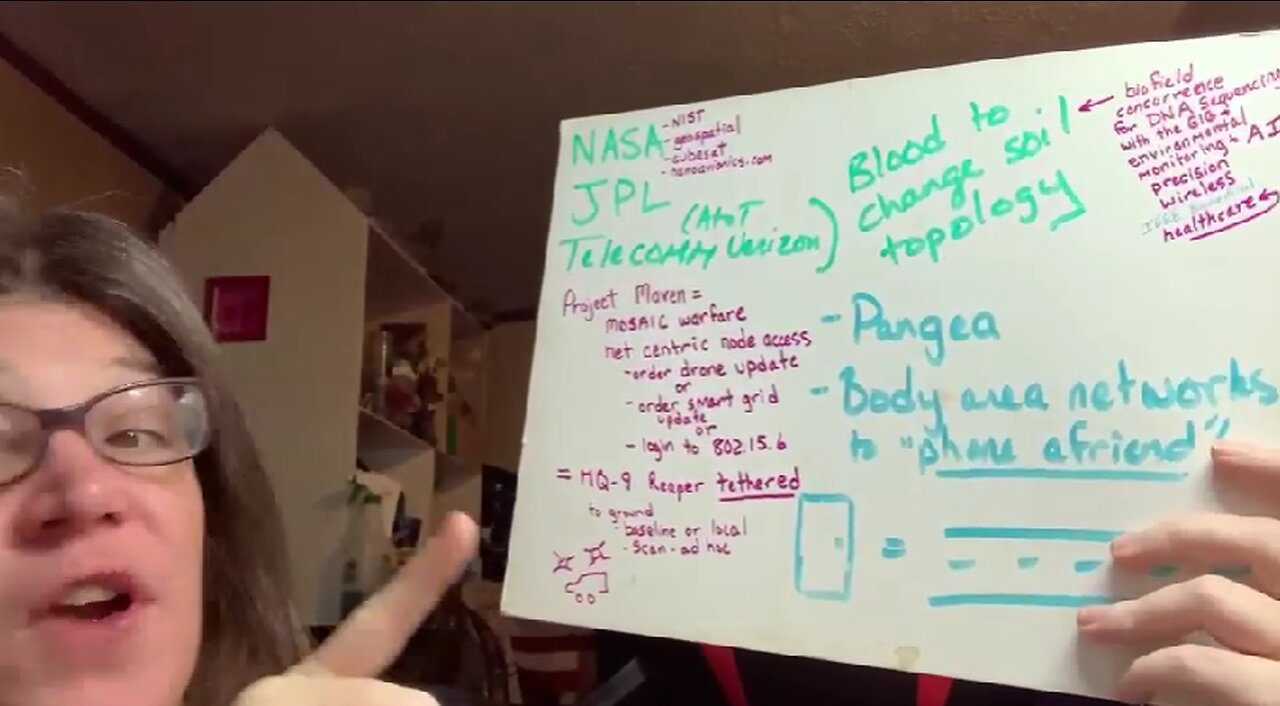 NASA
- NIST
- geospatial
- cubesat
- nanoavionics.com
JPL
Telecomm
(AtoT
Verizon)
Project Maven =
MOSAIC warfare
net centric node access
- order drone update
or
- order smart grid
update
or
- login to 802.15.6
= MQ-9 Reaper tethered
to ground
- baseline or local
- Scan - ad hoc
Blood to
change soil
topology
biofield
concurrence
for DNA Sequencing
with the GIG +
environmental
monitoring + AI
precision
wireless
healthcare
- Pangea
- Body area networks
to "phone a friend"
=